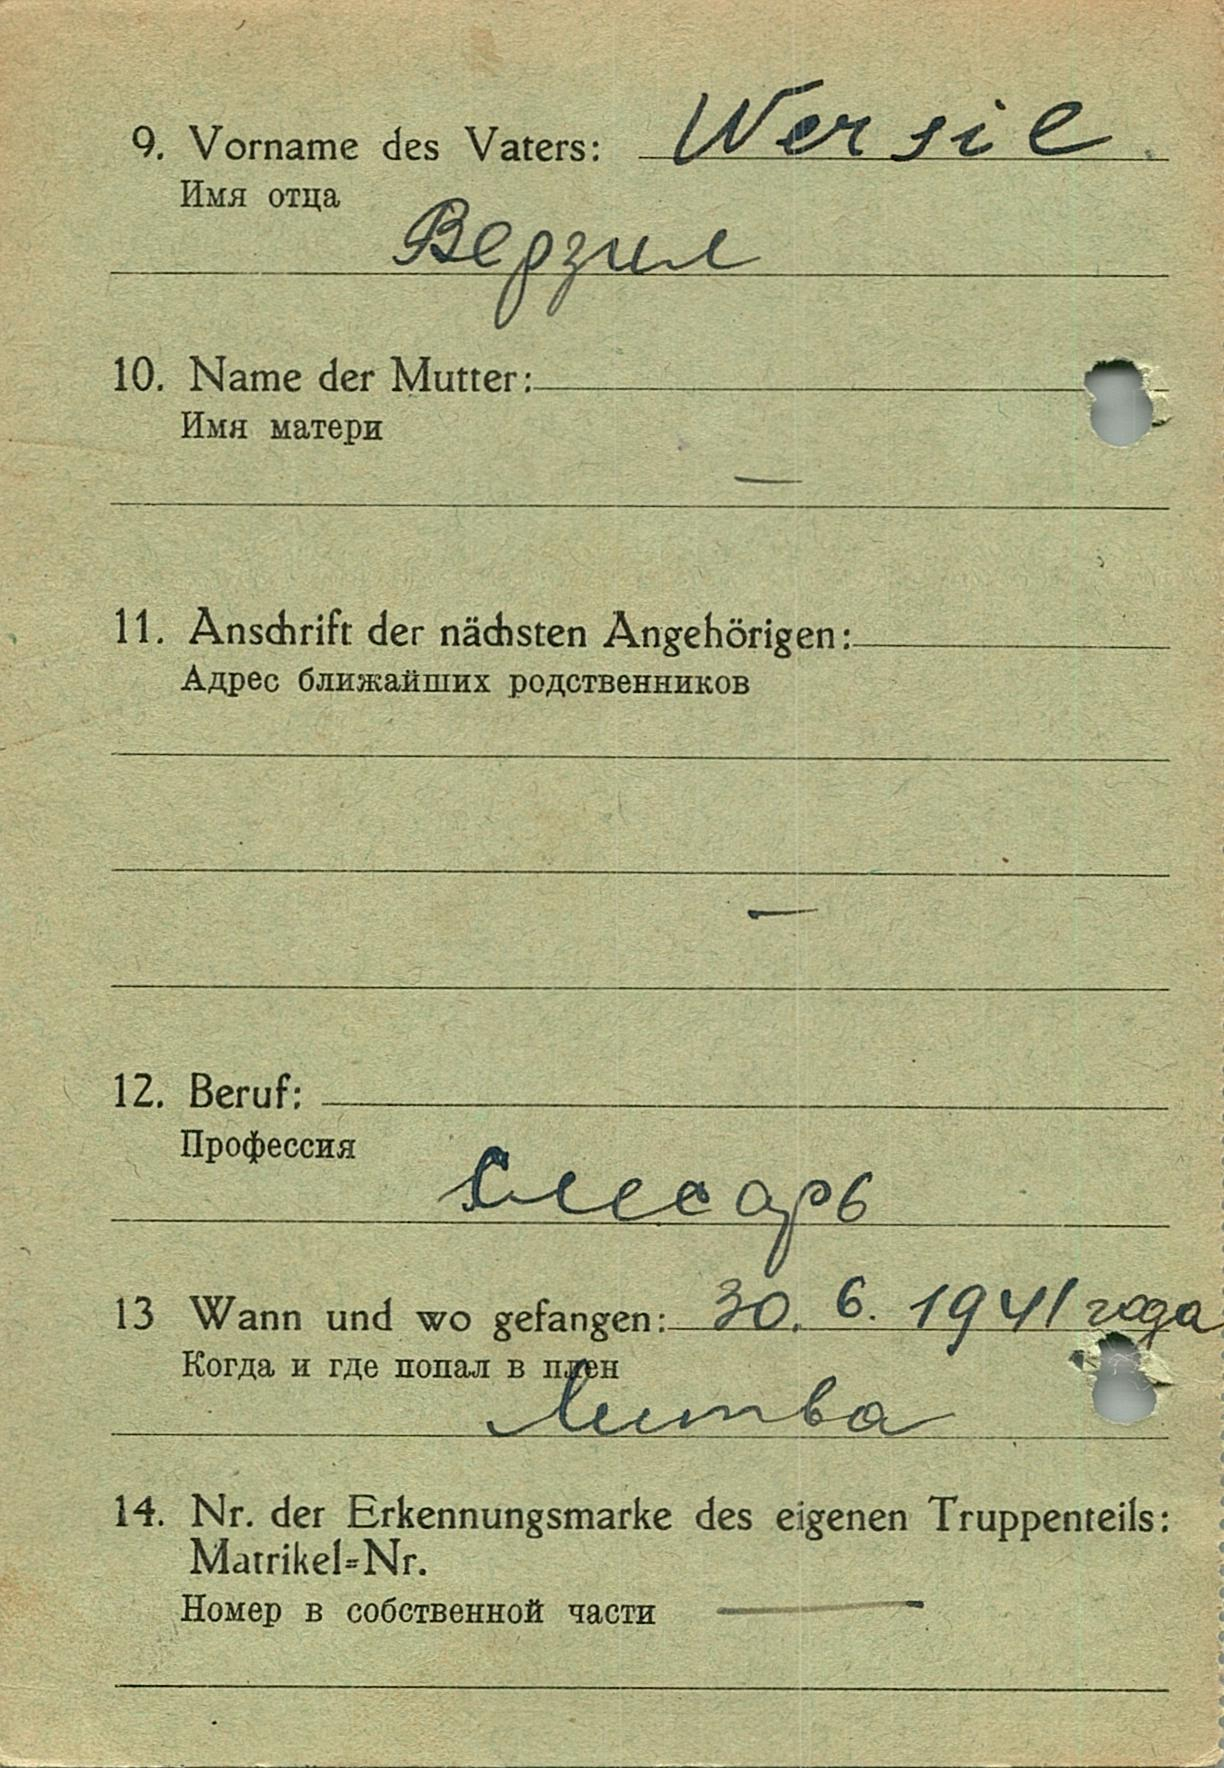 9. Vorname des Vaters: Wersil
Имя отца
Верзил
10. Name der Mutter:
Имя матери
—
11. Anschrift der nächsten Angehörigen:
Адрес ближайших родственников
—
12. Beruf:
Профессия
Слесарь
13 Wann und wo gefangen: 30. 6. 1941 года
Когда и где попал в плен
Литва
14. Nr. der Erkennungsmarke des eigenen Truppenteils:
Matrikel=Nr.
Номер в собственной части —